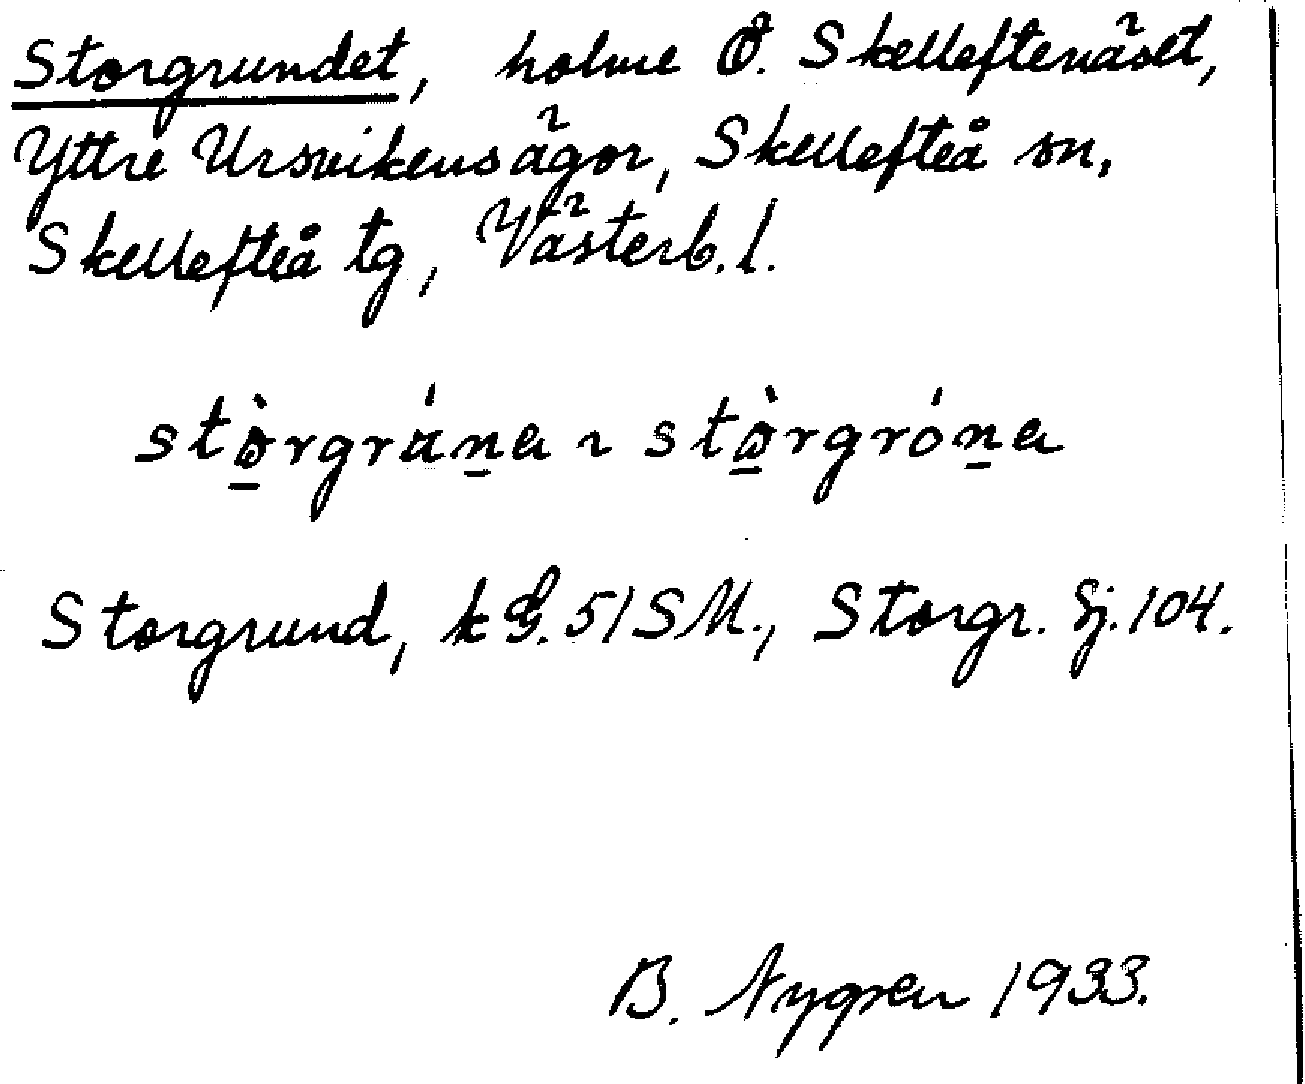 Storgrundet, holme Ö. Skelleftenäset,
Yttre Ursvikens ägor, Skellefteå sn,
Skellefteå tg, Västerb. l.
stò̠rgrán̠a ~ stò̠rgrón̠a
Storgrund, k G. 51 S M., Storgr. Sj. 104.
B. Nygren 1933.